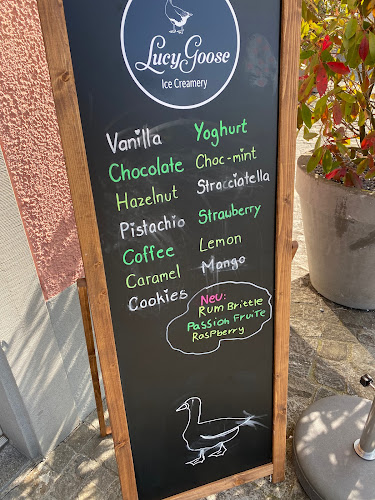 Lucy Goose
Ice Creamery
Vanilla
Chocolate
Hazelnut
Pistachio
Coffee
Caramel
Cookies
Yoghurt
Choc-mint
Stracciatella
Strawberry
Lemon
Mango
Neu:
Rum Brittle
Passion Fruite
Raspberry